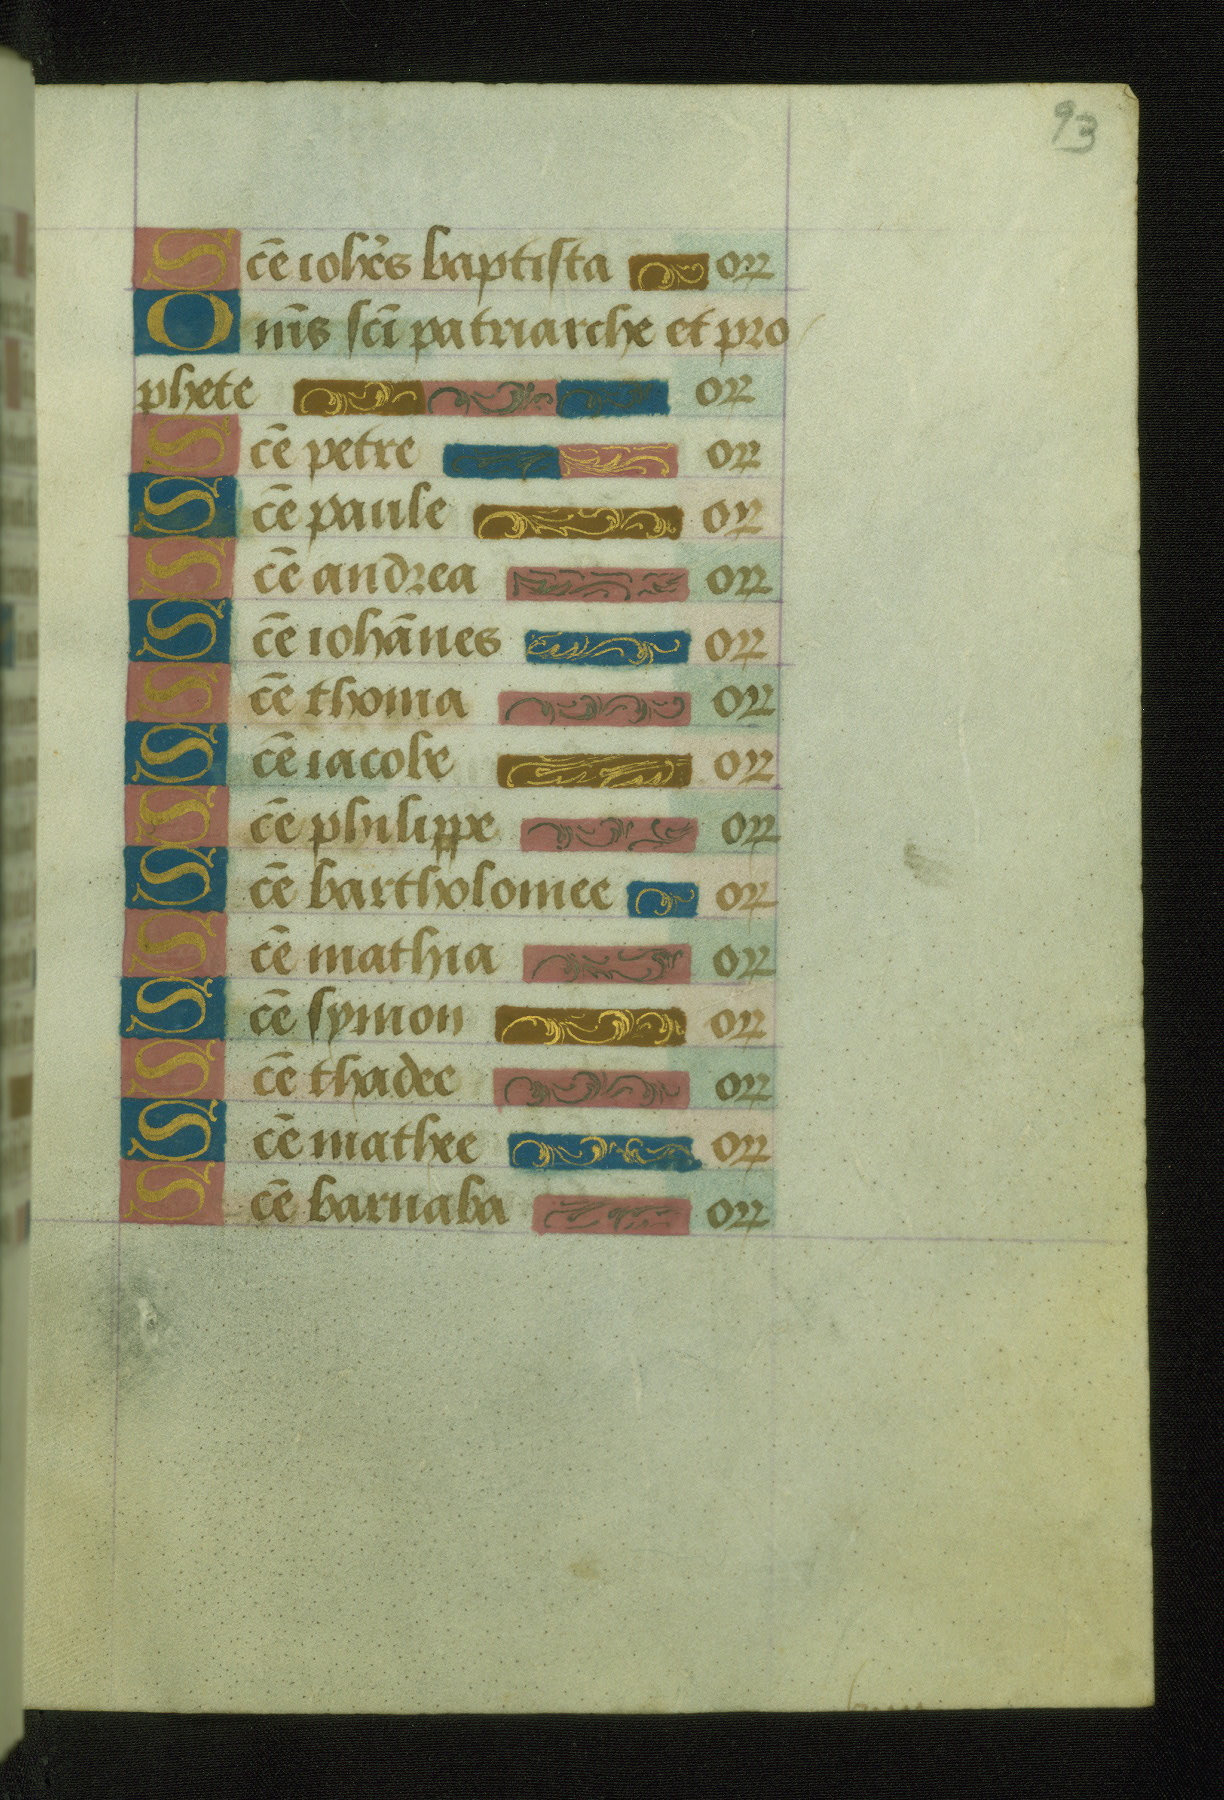 93
Sc̄e ioh̄es baptista orꝛ
Om̄s sc̄i patriarche et pro
phete orꝛ
Sc̄e petre orꝛ
Sc̄e paule orꝛ
Sc̄e andꝛea orꝛ
Sc̄e iohān̄es orꝛ
Sc̄e thoma orꝛ
Sc̄e iacobe orꝛ
Sc̄e philippe orꝛ
Sc̄e bartholomee orꝛ
Sc̄e mathia orꝛ
Sc̄e symon orꝛ
Sc̄e thadee orꝛ
Sc̄e mathee orꝛ
Sc̄e barnaba orꝛ